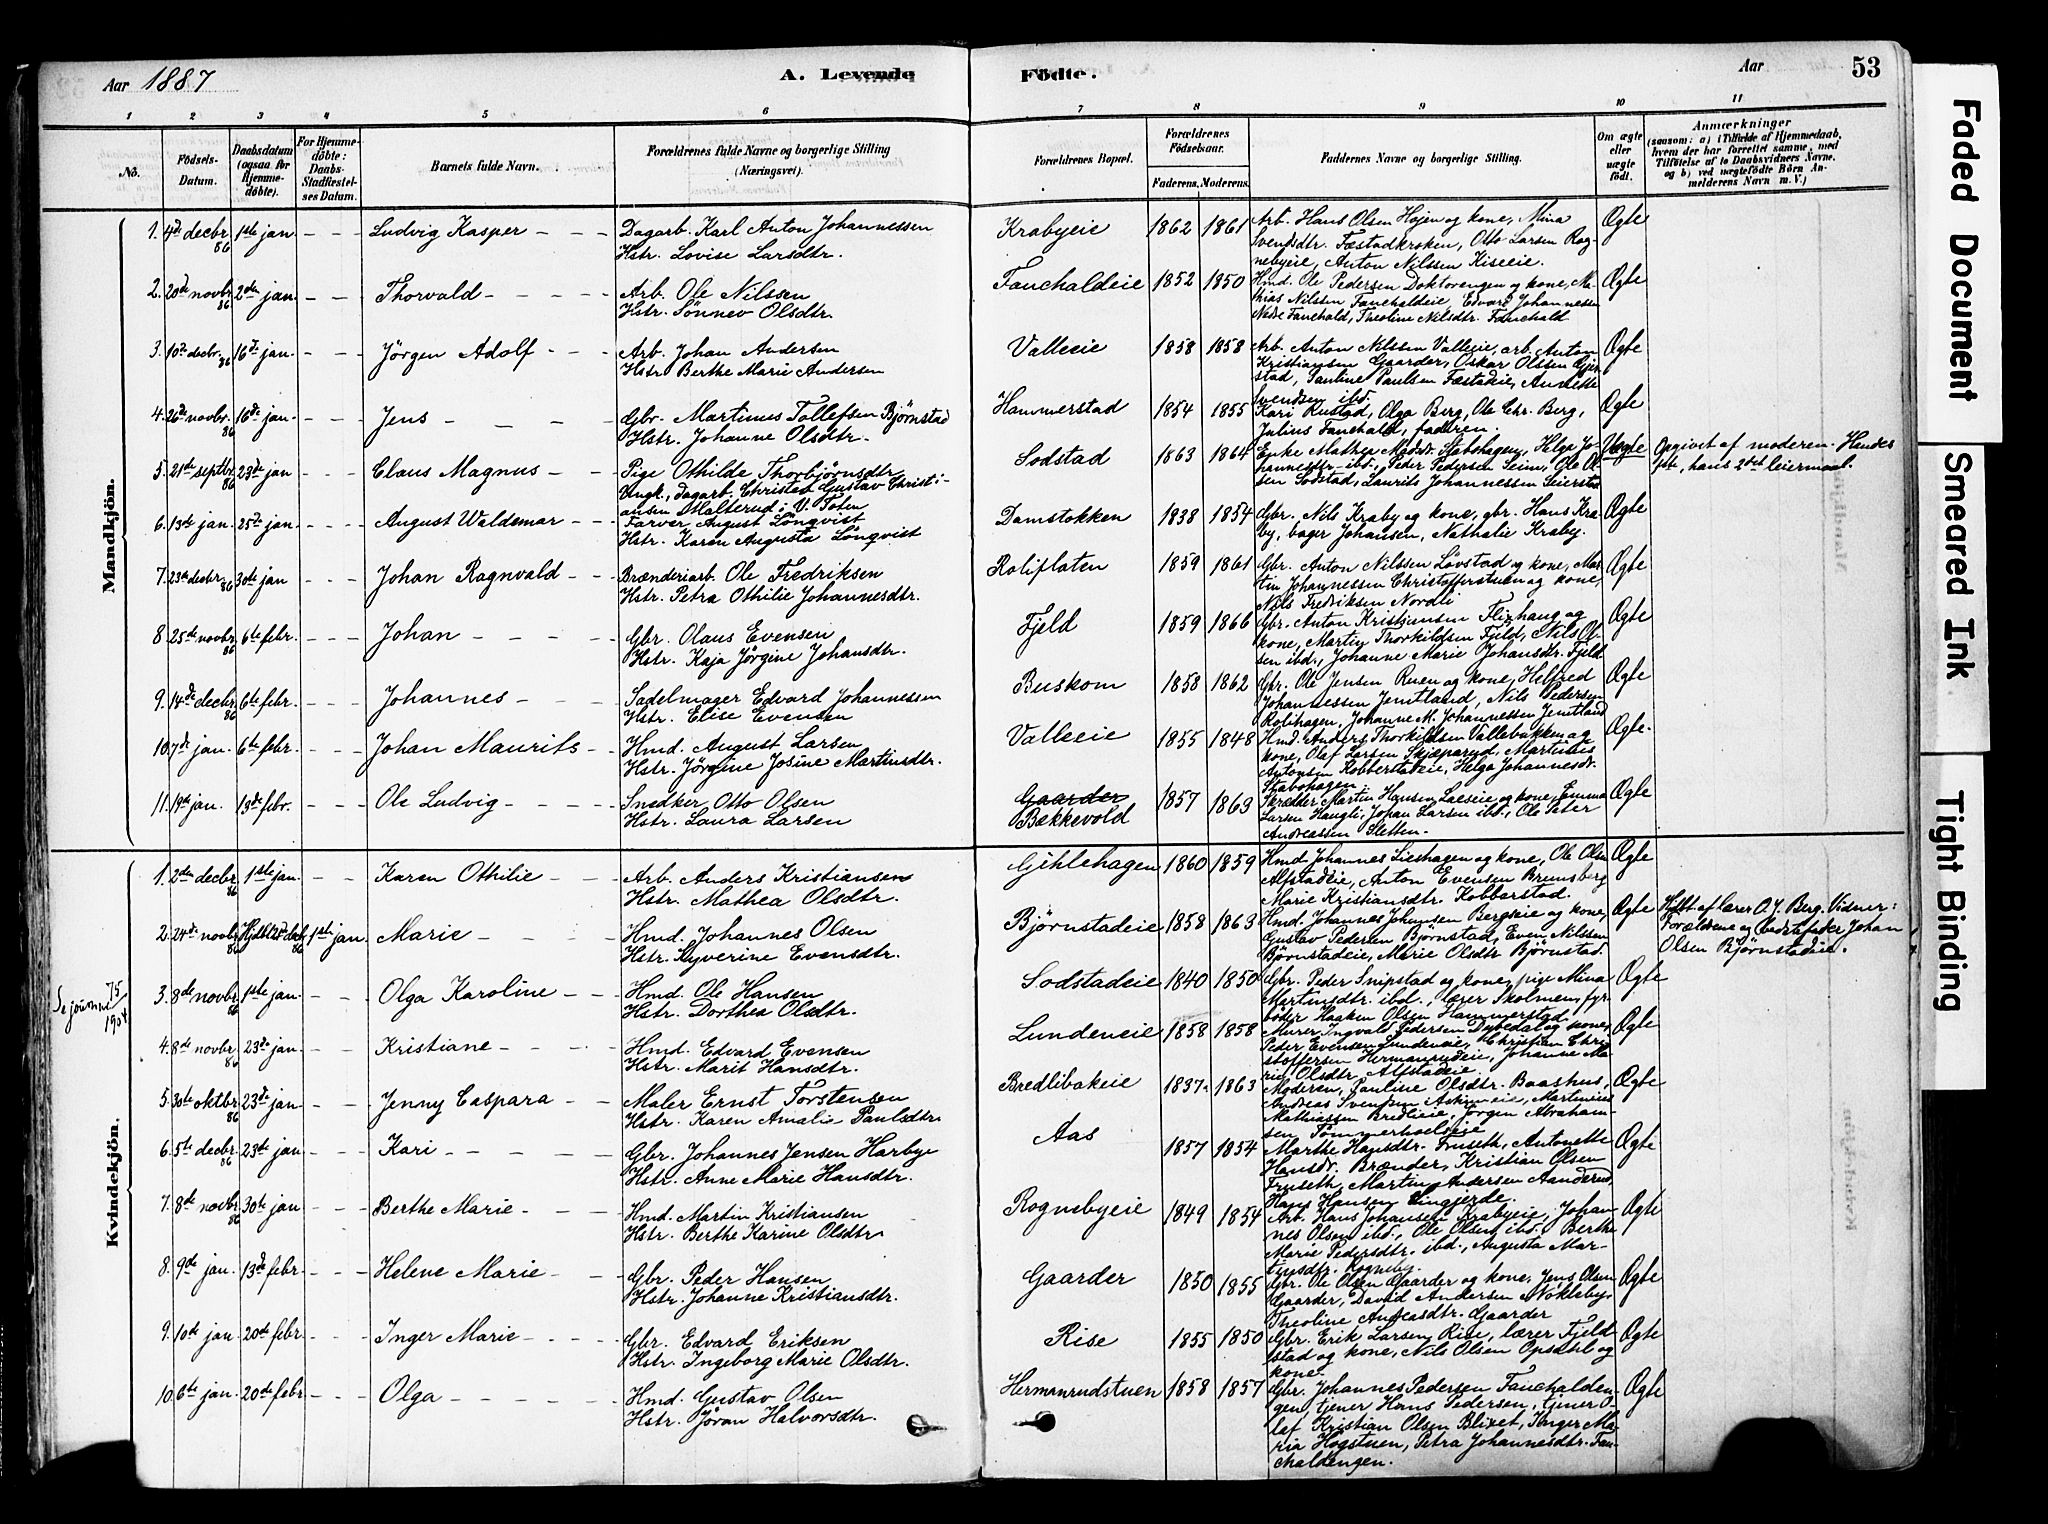 Aar 1887
A. Levende Födte.
Aar
53
1 2 3 4 5 6 7 8 9 10 11
No.
Födsels-Datum.
Daabsdatum (ogsaa for Hjemmedöbte).
For Hjemmedöbte: Daabs-Stadfæstelses Datum.
Barnets fulde Navn.
Forældrenes fulde Navne og borgerlige Stilling (Næringsvei).
Forældrenes Bopæl.
Forældrenes Födselsaar.
Faderens. Moderens.
Faddernes Navne og borgerlige Stilling.
Om ægte eller uægte födt.
Anmærkninger
(saasom: a) i Tilfælde af Hjemmedaab, hvem der har forrettet samme, med Tilföielse af to Daabsvidners Navne, og b) ved uægtefödte Börn Anmelderens Navn m. V.)
Mandkjön.
1. 4de decbr. 86 1ste jan. Ludvig Kasper
Dagarb. Karl Anton Johannessen
Hstr. Lovise Larsdtr.
Krabyeie 1862 1861
Arb. Hans Olsen Hojen og kone, Mina
Svendsdtr. Fæstadkroken, Otto Larsen Rog-
nebyeie, Anton Nilssen Kiseeie.
Ægte
2. 20de novbr. 86 2den jan. Thorvald
Arb. Ole Nilssen
Hstr. Sönnev Olsdtr.
Fauchaldeie 1852 1850
Hmd. Ole Pedersen Doktorengen og kone, Ma-
thias Nilssen Fauchaldeie, Edvard Johannessen
Nedre Fauchald, Theoline Nilsdtr. Fauchald
Ægte
3. 10de decbr. 86 16de jan. Jörgen Adolf
Arb. Johan Andersen
Hstr. Berthe Marie Andersen
Valleeie 1858 1858
Arb. Anton Nilssen Valleeie, arb. Anton
Kristiansen Gaarder, Oskar Olssen Gjer-
stad, Pauline Paulsen Fæstadeie, Annette
Svendsen ibd.
Ægte
4. 26de novbr. 86 16de jan. Jens
Gbr. Martinus Tollefsen Bjørnstad
Hstr. Johanne Olsdtr.
Hammerstad 1854 1855
Kari Rustad, Olga Berg, Ole Chr. Berg,
Julius Fauchald, faderen.
Ægte
5. 21de septbr. 86 23de jan Claus Magnus
Pige Othilde Thorbjörnsdtr.
Ungk., dagarb. Christen Gustav Christi-
ansen Malterud i V. Toten
Sodstad 1863 1864
Enke Mathea Madsdr. Stabohagen, Helga Jo-
hannesdtr. ibd., Peder Pedersen Seim, Ole Ol-
sen Sodstad, Laurits Johannessen Seierstad
Uægte
Opgivet af moderen. Hendes
1ste, hans 2det leiermaal.
6. 13de jan. 25de jan. August Waldemar
Farver August Lönqvist
Hstr. Karen Augusta Lönqvist
Damstokken 1838 1854
Gbr. Nils Kraby og kone, gbr. Hans Kra-
by, bager Johansen, Nathalie Kraby.
Ægte
7. 23de decbr. 86 30te jan Johan Ragnvald
Brænderiarb. Ole Fredriksen
Hstr. Petra Othilie Johannesdtr.
Roliflaten 1859 1861
Gbr. Anton Nilssen Lövstad og kone, Mar-
tin Johannessen Christofferstuen og kone,
Nils Fredriksen Nordli
Ægte
8. 25de novbr. 86 6te febr. Johan
Gbr. Olaus Evensen
Hstr. Kaja Jörgine Johansdtr.
Fjeld 1859 1866
Gbr. Anton Kristiansen Fliehaug og
kone, Martin Thorkildsen Fjeld, Nils Ol-
sen ibd., Johanne Marie Johansdtr. Fjeld
Ægte
9. 14de decbr. 86 6te febr. Johannes
Sadelmager Edvard Johannessen
Hstr. Elise Evensen
Buskom 1858 1862
Gbr. Ole Jensen Ruen og kone, Helfred
Johannessen Jemtland, Nils Pedersen
Rolihagen, Johanne M. Johannessen Jemtland
Ægte
10. 7de jan. 6te febr. Johan Maurits
Hmd. August Larsen
Hstr. Jörgine Josine Martinsdtr.
Valleeie 1855 1848
Hmd. Anders Thorkildsen Vallebakken og
kone, Olaf Larsen Skjeparud, Martinus
Antonsen Kobberstadeie, Helga Johannesdr.
Stabohagen
Ægte.
11. 19de jan. 13de febr. Ole Ludvig
Snedker Otto Olsen
Hstr. Laura Larsen
Gaarder
Bækkevold 1857 1863
Skrædder Martin Hansen Laeseie og kone, Emma
Larsen Haugli, Johan Larsen ibd., Ole Peter
Andreassen Sletten.
Ægte
Kvindekjön.
1. 2den decbr. 86 1ste jan. Karen Othilie
Arb. Anders Kristiansen
Hstr. Mathea Olsdtr.
Gihlehagen 1860 1859
Hmd. Johannes Lieshagen og kone, Ole Olsen
Alfstadeie, Anton Evensen Brunsberg
Marie Kristiansdtr. Kobberstad.
Ægte
2. 24de novbr. 86 Hjdbt 25de decbr. 86 1ste jan. Marie
Hmd. Johannes Olsen
Hstr. Syverine Evensdtr.
Bjørnstadeie 1858 1863
Hmd. Johannes Johansen Bergseie og kone,
Gustav Pedersen Bjørnstad, Even Nilssen
Bjørnstadeie, Marie Olsdtr Bjørnstad.
Ægte
Hjdbt af lærer O. J. Berg. Vidner:
Forældrene og bedstefader Johan
Olsen Bjørnstadeie.
Se journ. 75/1904
3. 8de novbr. 86 1ste jan. Olga Karoline
Hmd. Ole Hansen
Hstr. Dorthea Olsdtr.
Sodstadeie 1840 1850
Gbr. Peder Snipstad og kone, pige Mina
Martinsdtr. ibd., lærer Skolmen, fyr-
böder Haaken Olsen Hammerstad.
Ægte
4. 8de novbr. 86 23de jan Kristiane
Hmd. Edvard Evensen
Hstr. Marit Hansdtr.
Lundeneie 1858 1858
Murer Ingvald Pedersen Dybedal og kone,
Peder Evensen Lundeneie, Christian Chri-
stoffersen Hermanrudeie, Johanne Ma-
rie Olsdtr. Alfstadeie.
Ægte
5. 30te oktbr. 86 23de jan Jenny Caspara
Maler Ernst Torstensen
Hstr. Karen Amalie Paulsdtr.
Bredlibakeie 1837 1863
Moderen, Pauline Olsdtr. Baashus,
Andreas Svendsen Askimeie, Martinius
Mathiassen Bredlieie, Jörgen Abraham-
sen Tömmerhoelseie
Ægte
6. 5te decbr. 86 23de jan Kari
Gbr. Johannes Jensen Harbye
Hstr. Anne Marie Hansdtr.
Aas 1857 1854
Marthe Hansdtr. Fruseth, Antonette
Hansdr. Brænder, Kristian Olsen
Fruseth, Martin Andersen Aanderud,
Hans Hansen Lingjerde.
Ægte
7. 8de novbr. 86 30te jan Berthe Marie
Hmd. Martin Kristiansen
Hstr. Berthe Karine Olsdtr
Rognebyeie 1849 1854
Arb. Hans Johansen Krabyeie, Johan-
nes Olsen ibd., Ole Olsen ibd., Berthe
Marie Pedersdtr. ibd., Augusta Mar-
tinsdtr. Rogneby.
Ægte
8. 9de jan. 13de febr. Helene Marie
Gbr. Peder Hansen
Hstr. Johanne Kristiansdtr.
Gaarder 1850 1855
Gbr. Ole Olsen Gaarder og kone, Jens Olsen
Gaarder, David Andersen Nökleby,
Theoline Andreasdtr. Gaarder
Ægte
9. 10de jan 20de febr. Inger Marie
Gbr. Edvard Eriksen
Hstr. Ingeborg Marie Olsdtr.
Rise 1855 1850
Gbr. Erik Larsen Rise, lærer Fjeld-
stad og kone, Nils Olsen Opsahl og
kone.
Ægte
10. 6te jan. 20de febr Olga
Hmd. Gustav Olsen
Hstr. Jöran Halvorsdtr.
Hermanrudstuen 1858 1857
Gbr. Johannes Pedersen Fauchalden-
gen, tjener Hans Pedersen, tjener O-
lef Kristian Olsen Blixet, Inger Ma-
ria Hogstuen, Petra Johannesdtr. Fau-
chaldengen.
Ægte
Faded Document
Smeared Ink
Tight Binding